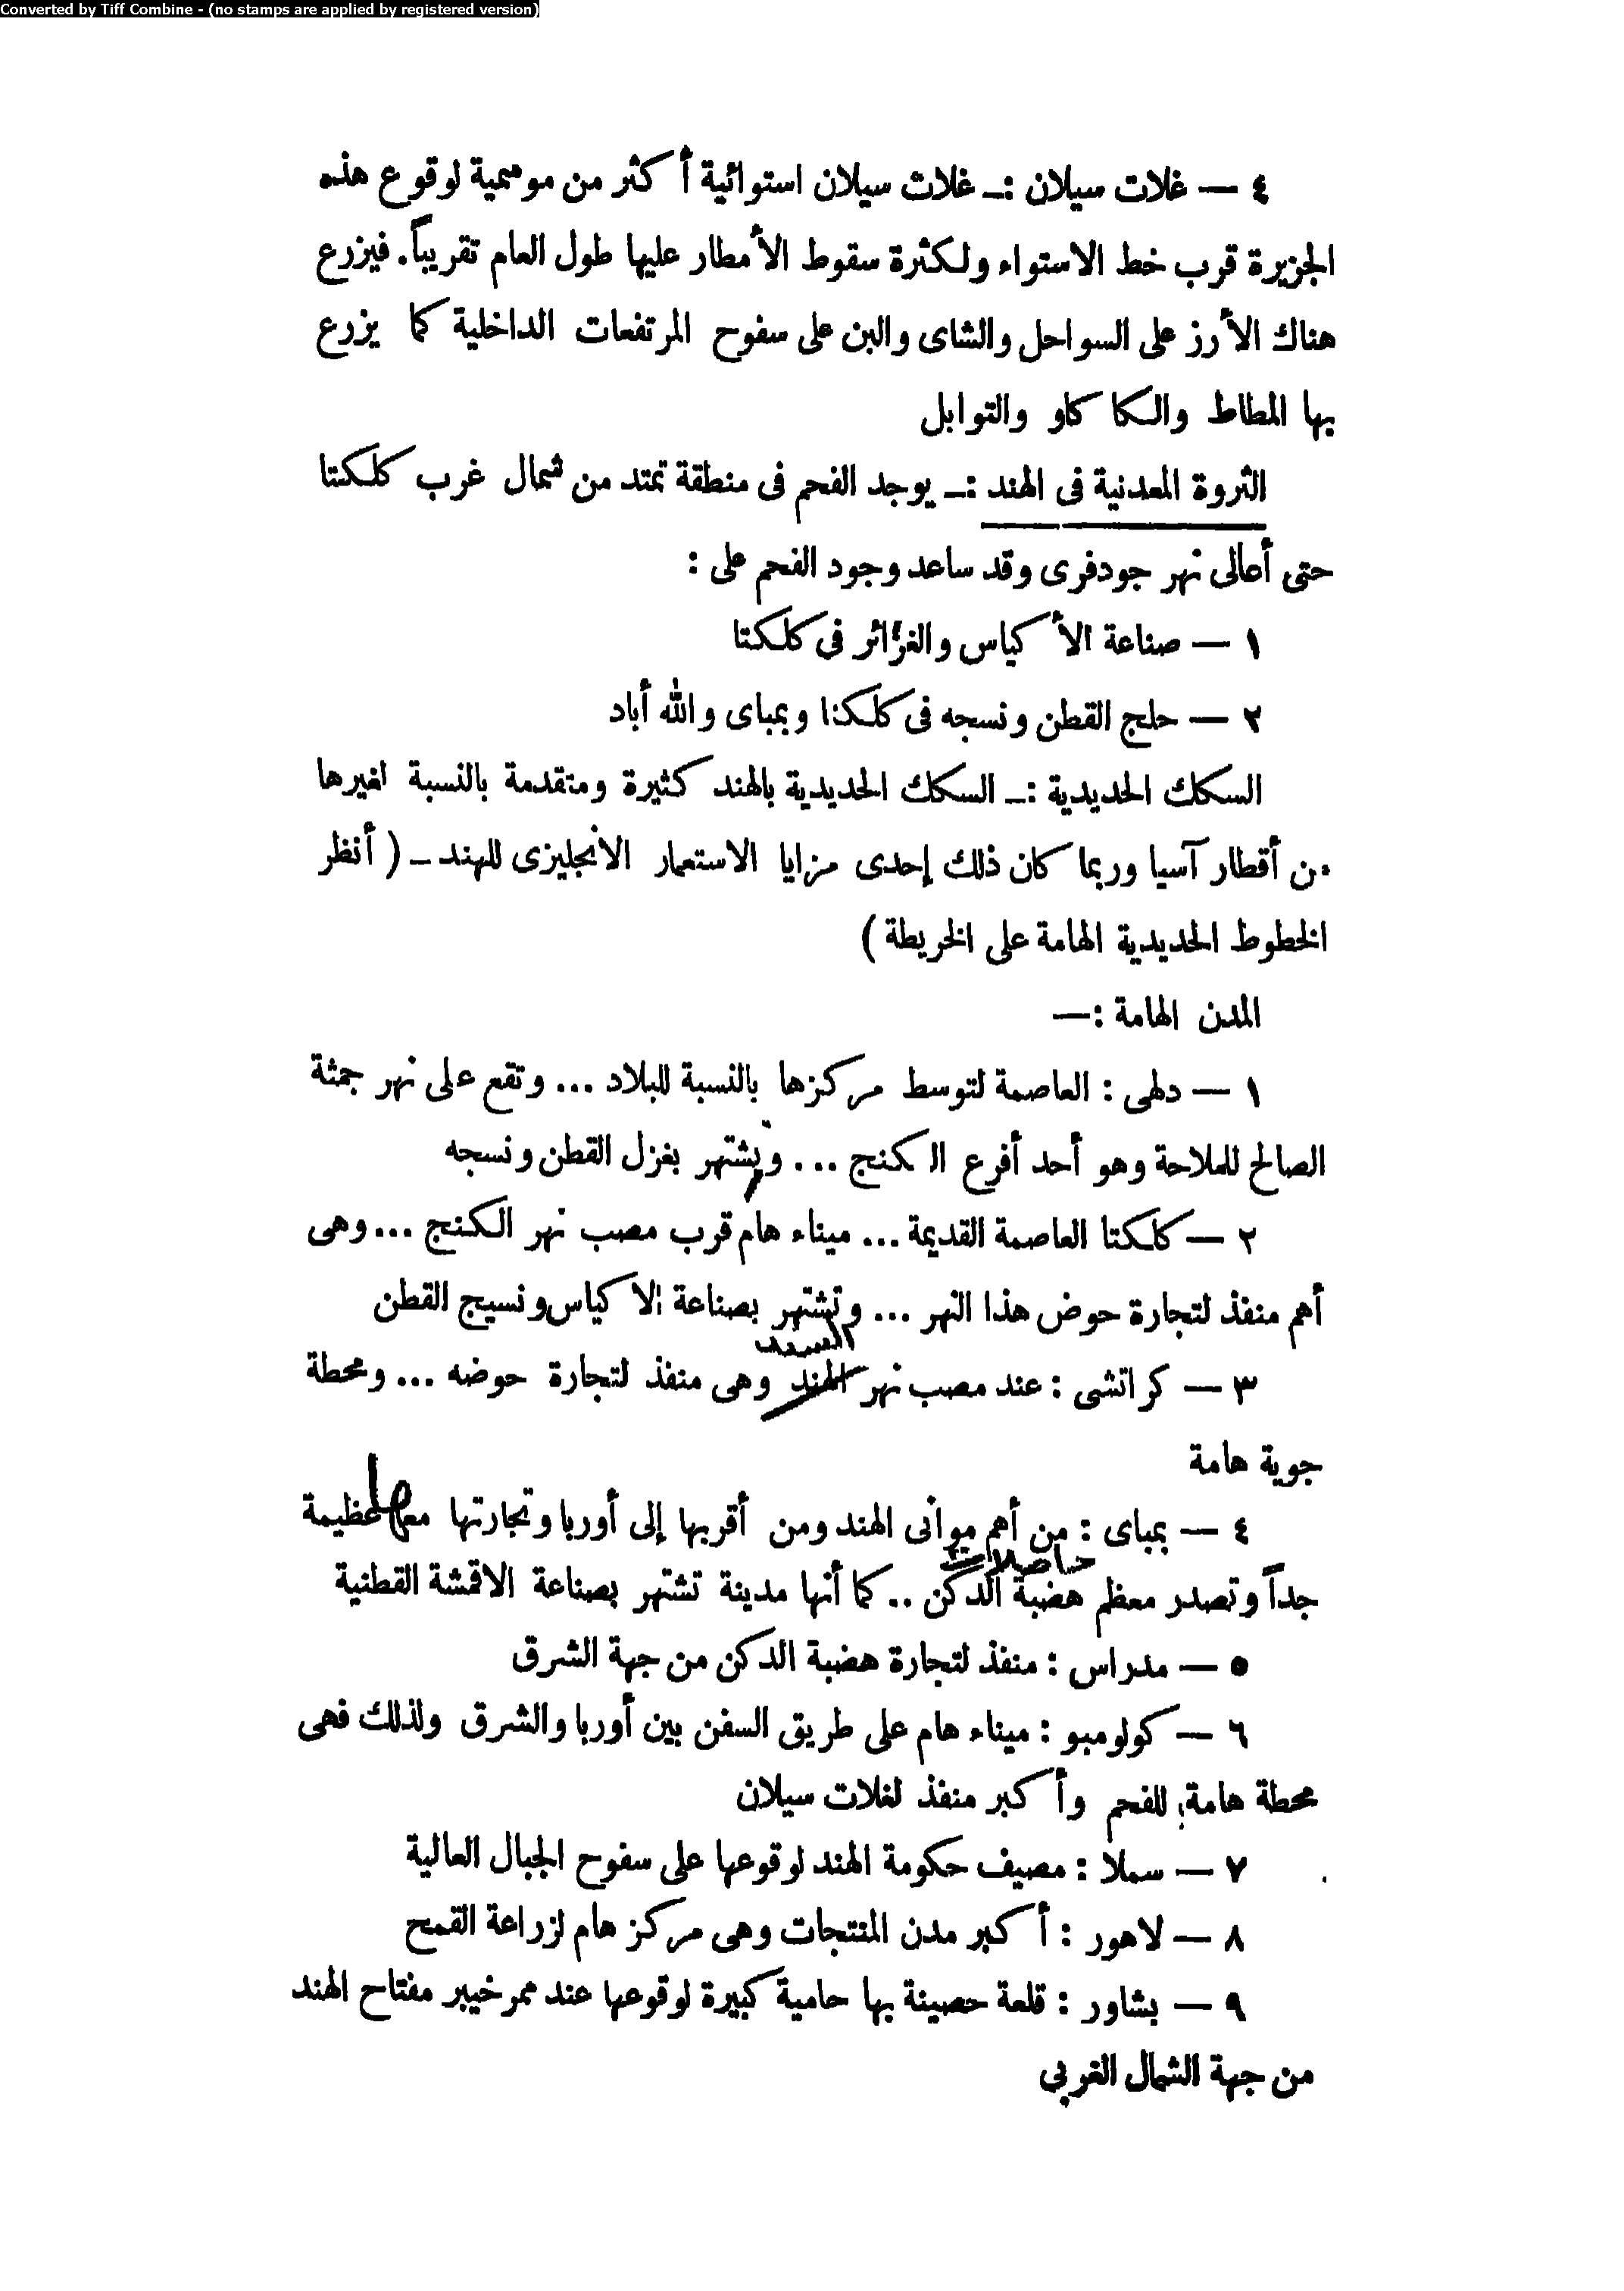 Converted by Tiff Combine - (no stamps are applied by registered version)
٤ — غلات سيلان :ـ غلات سيلان استوائية أكثر من موسمية لوقوع هذه
الجزيرة قرب خط الاستواء ولكثرة سقوط الأمطار عليها طول العام تقريباً. فيزرع
هناك الأرز على السواحل والشاى والبن على سفوح المرتفعات الداخلية كما يزرع
بها المطاط والكاكاو والتوابل
الثروة المعدنية فى الهند :ـ يوجد الفحم فى منطقة تمتد من شمال غرب كلكتا
حتى أعالى نهر جودفرى وقد ساعد وجود الفحم على :
١ — صناعة الأكياس والغرائر فى كلكتا
٢ — حلج القطن ونسجه فى كلكتا وبمباى والله أباد
السكك الحديدية :ـ السكك الحديدية بالهند كثيرة ومتقدمة بالنسبة لغيرها
من أقطار آسيا وربما كان ذلك إحدى مزايا الاستعمار الانجليزى للهند ـ ( أنظر
الخطوط الحديدية الهامة على الخريطة )
المدن الهامة :—
١ — دلهى : العاصمة لتوسط مركزها بالنسبة للبلاد ... وتقع على نهر جمنة
الصالح للملاحة وهو أحد أفرع الكنج ... وتشتهر بغزل القطن ونسجه
٢ — كلكتا العاصمة القديمة ... ميناء هام قرب مصب نهر الكنج ... وهى
أهم منفذ لتجارة حوض هذا النهر ... وتشتهر بصناعة الاكياس ونسيج القطن
السند
٣ — كراتشى : عند مصب نهر الهند وهى منفذ لتجارة حوضه ... ومحطة
جوية هامة
٤ — بمباى : من أهم موانى الهند ومن أقربها إلى أوربا وتجارتها معها عظيمة
حاصلات
جداً وتصدر معظم هضبة الدكن .. كما أنها مدينة تشتهر بصناعة الاقمشة القطنية
٥ — مدراس : منفذ لتجارة هضبة الدكن من جهة الشرق
٦ — كولومبو : ميناء هام على طريق السفن بين أوربا والشرق ولذلك فهى
محطة هامة للفحم وأكبر منفذ لغلات سيلان
٧ — سملا : مصيف حكومة الهند لوقوعها على سفوح الجبال العالية
٨ — لاهور : أكبر مدن المنتجات وهى مركز هام لزراعة القمح
٩ — بشاور : قلعة حصينة بها حامية كبيرة لوقوعها عند ممر خيبر مفتاح الهند
من جهة الشمال الغربى